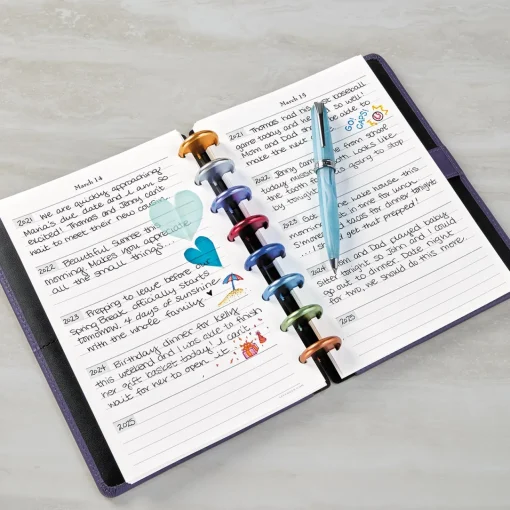 March 14
2021 We are quickly approaching
Mama's due date and I am so
elated! Thomas and Jenny can't
wait to meet their new cousin.
2022 Beautiful sunrise this
morning. Makes you appreciate
all the small things...
2023 Prepping to leave before
Spring Break officially starts
tomorrow. 4 days of sunshine
with the whole family
2024 Birthday dinner for Kelly
this weekend and I was able to finish
her gift basket today! I can't
wait for her to open it.
2025
March 15
2021 Thomas had his first baseball
game today and he did so well!
Mom and Dad should be able to
make the next
GO!
CAPS!
2022 Jenny came home from school
today missing a tooth. Looks like
the tooth fairy is going to stop
by tonight
2023 Got the late house this
morning in time for lunch.
Smoked tacos for dinner tonight
... I should get that prepped!
2024 Mom and Dad played baby
sitter tonight so John and I could
go out to dinner. Date night
for two, we should do this more.
2025